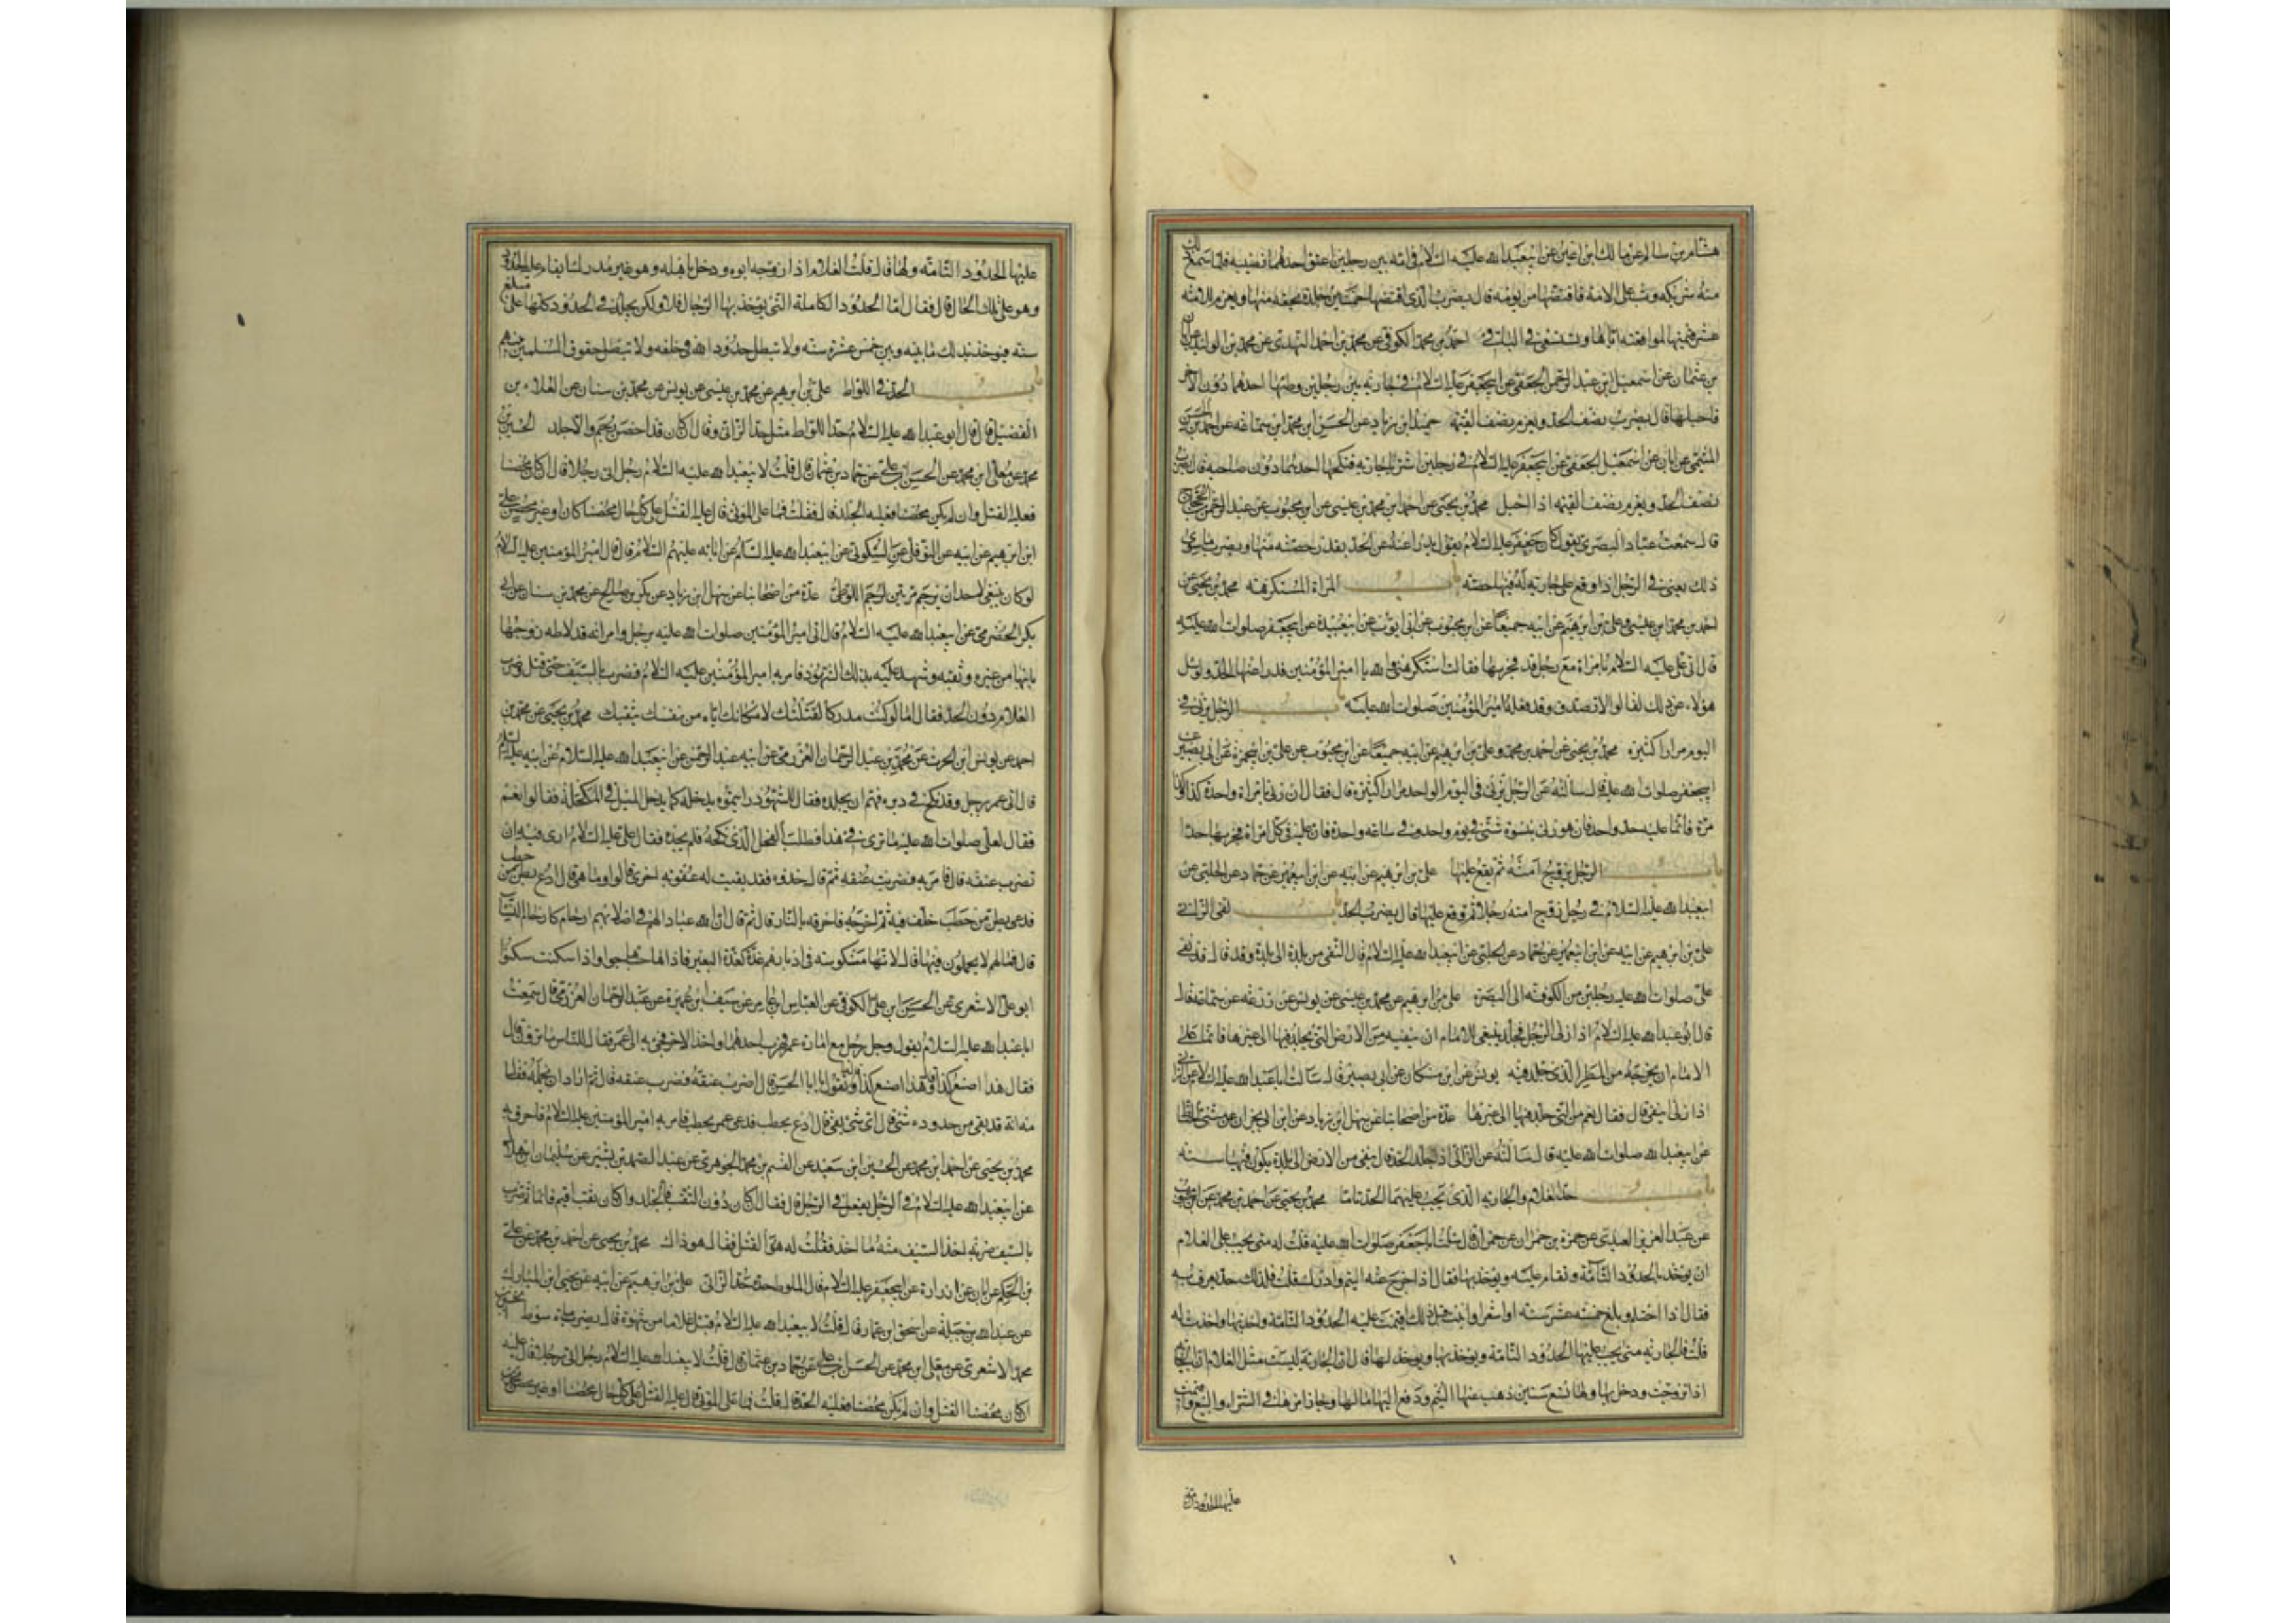 هشام بن سالم عن مالك بن اعين عن ابيعبدالله عليه السلام في امة بين رجلين اعتق احدهما نصيبه فلما سمع ذلك
منه شريكه وثب على الامة فاقتضها من يومه قال يضرب الذي اقتضها خمسين جلدة بحقه منها ويغرم للامة
عشر قيمتها لمواقعته اياها وتستسعى في الباقي احمد بن محمد الكوفي عن محمد بن احمد النهدي عن محمد بن الوليد عن ابان
بن عثمان عن اسمعيل بن عبد الرحمن الجعفي عن ابيجعفر عليه السلام في جارية بين رجلين وطئها احدهما دون الاخر
فاحبلها قال يضرب نصف الحد ويغرم نصف القيمة حميد ابن زياد عن الحسن ابن محمد ابن سماعة عن احمد بن الحسن
الميثمي عن ابان عن اسمعيل الجعفي عن ابيجعفر عليه السلام في رجلين اشتريا جارية فنكحها احدهما دون صاحبه قال يضرب
نصف الحد ويغرم نصف القيمة اذا احبل محمد بن يحيى عن احمد ابن محمد بن عيسى عن ابن محبوب عن عبد الرحمن بن الحجاج
قال سمعت عباد البصري يقول كان جعفر عليه السلام يقول يدرأ عنه من الحد بقدر حصته منها ويضرب ما سوى
ذلك يعني في الرجل اذا وقع على جارية له فيها حصته باب المراة المستكرهة محمد بن يحيى عن
احمد بن محمد ابن عيسى وعلي بن ابرهيم عن ابيه جميعا عن ابن محبوب عن ابي ايوب عن ابيعبيدة عن ابيجعفر صلوات الله عليه
قال اتى علي عليه السلام بامراة مع رجل قد فجر بها فقالت استكرهني والله يا امير المؤمنين فدرا عنها الحد ولو سئل
هؤلاء عن ذلك لقالوا لا تصدق وقد فعله امير المؤمنين صلوات الله عليه باب الرجل يزني في
اليوم مرارا كثيرة محمد بن يحيى عن احمد بن محمد وعلي بن ابرهيم عن ابيه جميعا عن ابن محبوب عن علي بن ابيحمزة عن ابي بصير عن
ابيجعفر صلوات الله عليه قال سالته عن الرجل يزني في اليوم الواحد مرارا كثيرة قال فقال ان زنى بامراة واحدة كذا وكذا
مرة فانما عليه حد واحد فان هو زنى بنسوة شتى في يوم واحد وفي ساعة واحدة فان عليه في كل امراة فجر بها حدا
باب الرجل يزوج امته ثم يقع عليها علي بن ابرهيم عن ابيه عن ابن ابيعمير عن حماد عن الحلبي عن
ابيعبدالله عليه السلام في رجل زوج امته رجلا ثم وقع عليها قال يضرب الحد باب نفي الزاني
علي بن ابرهيم عن ابيه عن ابن ابيعمير عن حماد عن الحلبي عن ابيعبدالله عليه السلام قال النفي من بلدة الى بلدة وقد قال قد نفى
علي صلوات الله عليه رجلين من الكوفة الى البصرة علي بن ابرهيم عن محمد بن عيسى عن يونس عن زرعة عن سماعة قال
قال ابو عبدالله عليه السلام اذا زنى الرجل فجلد ينبغي للامام ان ينفيه من الارض التي يجلد فيها الى غيرها فانما على
الامام ان يخرجه من المصر الذي جلد فيه يونس عن ابن مسكان عن ابي بصير قال سالت اباعبدالله عليه السلام عن الزاني
اذا زنى اينفى قال فقال نعم من التي جلد فيها الى غيرها عدة من اصحابنا عن سهل ابن زياد عن ابن ابي نجران عن مثنى الحناط
عن ابيعبدالله صلوات الله عليه قال سالته عن الزاني اذا جلد الحد قال ينفى من الارض الى بلدة يكون فيها سنة
باب حد الغلام والجارية الذي يجب عليهما الحد تاما محمد بن يحيى عن احمد بن محمد عن ابن محبوب
عن عبد العزيز العبدي عن حمزة بن حمران عن حمران قال سئلت اباجعفر صلوات الله عليه قلت له متى يجب على الغلام
ان يوخذ بالحدود التامة وتقام عليه ويوخذ بها فقال اذا خرج عنه اليتم وادرك قلت فلذلك حد يعرف به
فقال اذا احتلم وبلغ خمسة عشر سنة او اشعر او انبت قبل ذلك اقيمت عليه الحدود التامة واخذ بها واخذت له
قلت فالجارية متى يجب عليها الحدود التامة ويوخذ بها ويوخذ لها قال ان الجارية ليست مثل الغلام ان الجارية
اذا تزوجت ودخل بها ولها تسع سنين ذهب عنها اليتم ودفع اليها مالها وجاز امرها في الشراء والبيع واقيمت
عليها الحدود التامة
عليها الحدود التامة ولها قال قلت الغلام اذا زوجه ابوه ودخل باهله وهو غير مدرك ايقام عليه الحدود
وهو على تلك الحال قال فقال اما الحدود الكاملة التي يوخذ بها الرجال فلا ولكن يجلد في الحدود كلها على مبلغ
سنه فيوخذ بذلك ما بينه وبين خمس عشرة سنة ولا تبطل حدود الله في خلقه ولا تبطل حقوق المسلمين بينهم
باب الحد في اللواط علي بن ابرهيم عن محمد بن عيسى عن يونس عن محمد بن سنان عن العلاء بن
الفضيل قال قال ابو عبدالله عليه السلام حد اللواط مثل حد الزاني وقال ان كان قد احصن رجم والا جلد الحسين بن
محمد عن معلى ابن محمد عن الحسن بن علي عن حماد بن عثمان قال قلت لابيعبدالله عليه السلام رجل اتى رجلا قال ان كان محصنا
فعليه القتل وان لم يكن محصنا فعليه الجلد قال فقلت فما على الموتى قال عليه القتل على كل حال محصنا كان او غير محصن علي
ابن ابرهيم عن ابيه عن النوفلي عن السكوني عن ابيعبدالله عليه السلام عن ابائه عليهم السلام قال قال امير المؤمنين عليه السلام
لو كان ينبغي لاحد ان يرجم مرتين لرجم اللوطي عدة من اصحابنا عن سهل ابن زياد عن بكر بن صالح عن محمد بن سنان عن ابي
بكر الحضرمي عن ابيعبدالله عليه السلام قال اتى امير المؤمنين صلوات الله عليه برجل وامراته قد لاط زوجها
بابنها من غيره وثقبه وشهد عليه بذلك الشهود فامر به امير المؤمنين عليه السلام فضرب بالسيف حتى قتل وضرب
الغلام دون الحد فقال اما لو كنت مدركا لقتلتك لامكانك اياه من نفسك بثقبك محمد بن يحيى عن محمد بن
احمد عن يوسف ابن الحرث عن محمد بن عبد الرحمان العزرمي عن ابيه عبد الرحمن عن ابيعبدالله عليه السلام عن ابيه عليه السلام
قال اتى عمر برجل وقد نكح في دبره فهم ان يجلده فقال للشهود رايتموه يدخله كما يدخل الميل في المكحلة فقالوا نعم
فقال لعلي صلوات الله عليه ما ترى في هذا فطلب الفحل الذي نكحه فلم يجده فقال علي عليه السلام ارى فيه ان
تضرب عنقه قال فامر به فضربت عنقه ثم قال خذوه فقد بقيت له عقوبة اخرى قالوا وما هي قال ادع بطن من حطب
فدعى بطن من حطب فلف فيه ثم اخرجه فاحرقه بالنار قال ثم قال ان لله عبادا لهم في اصلابهم ارحام كارحام النساء
قال فما لهم لا يحملون فيها قال لانها منكوسة في ادبارهم غدة كغدة البعير فاذا هاجت هاجوا واذا سكنت سكنوا
ابو علي الاشعري عن الحسن ابن علي الكوفي عن العباس ابن عامر عن سيف ابن عميرة عن عبد الرحمان العزرمي قال سمعت
اباعبدالله عليه السلام يقول وجد رجل مع رجل في امارة عمر فهرب احدهما واخذ الاخر فجيء به الى عمر فقال للناس ما ترون قال
فقال هذا اصنع كذا وقال هذا اصنع كذا قال ما تقول يا ابا الحسن قال اضرب عنقه فضرب عنقه قال ثم اراد ان يحمله فقال
مه انه قد بقي من حدوده شيء قال اي شيء بقي قال ادع بحطب فدعى عمر بحطب فامر به امير المؤمنين عليه السلام فاحرق به
محمد بن يحيى عن احمد ابن محمد عن الحسين ابن سعيد عن القسم بن محمد الجوهري عن عبد الصمد بن بشير عن سليمان ابن هلال
عن ابيعبدالله عليه السلام في الرجل يفعل في الرجل قال فقال ان كان دون الثقب فالجلد وان كان ثقب اقيم قائما ثم ضرب
بالسيف ضربة اخذ السيف منه ما اخذ فقلت له هو القتل فقال هو ذاك محمد بن يحيى عن احمد بن محمد عن علي
بن الحكم عن ابان عن زرارة عن ابيجعفر عليه السلام قال الملوط حده حد الزاني علي بن ابرهيم عن ابيه عن يحيى ابن المبارك
عن عبدالله بن جبلة عن اسحق ابن عمار قال قلت لابيعبدالله عليه السلام قبل غلاما من شهوة قال يضرب مائة سوط الحسين بن
محمد الاشعري عن معلى ابن محمد عن الحسن بن علي عن حماد بن عثمان قال قلت لابيعبدالله عليه السلام رجل اتى رجلا قال عليه
ان كان محصنا القتل وان لم يكن محصنا فعليه الحد قال قلت فما على الموتى قال عليه القتل على كل حال محصنا او غير محصن